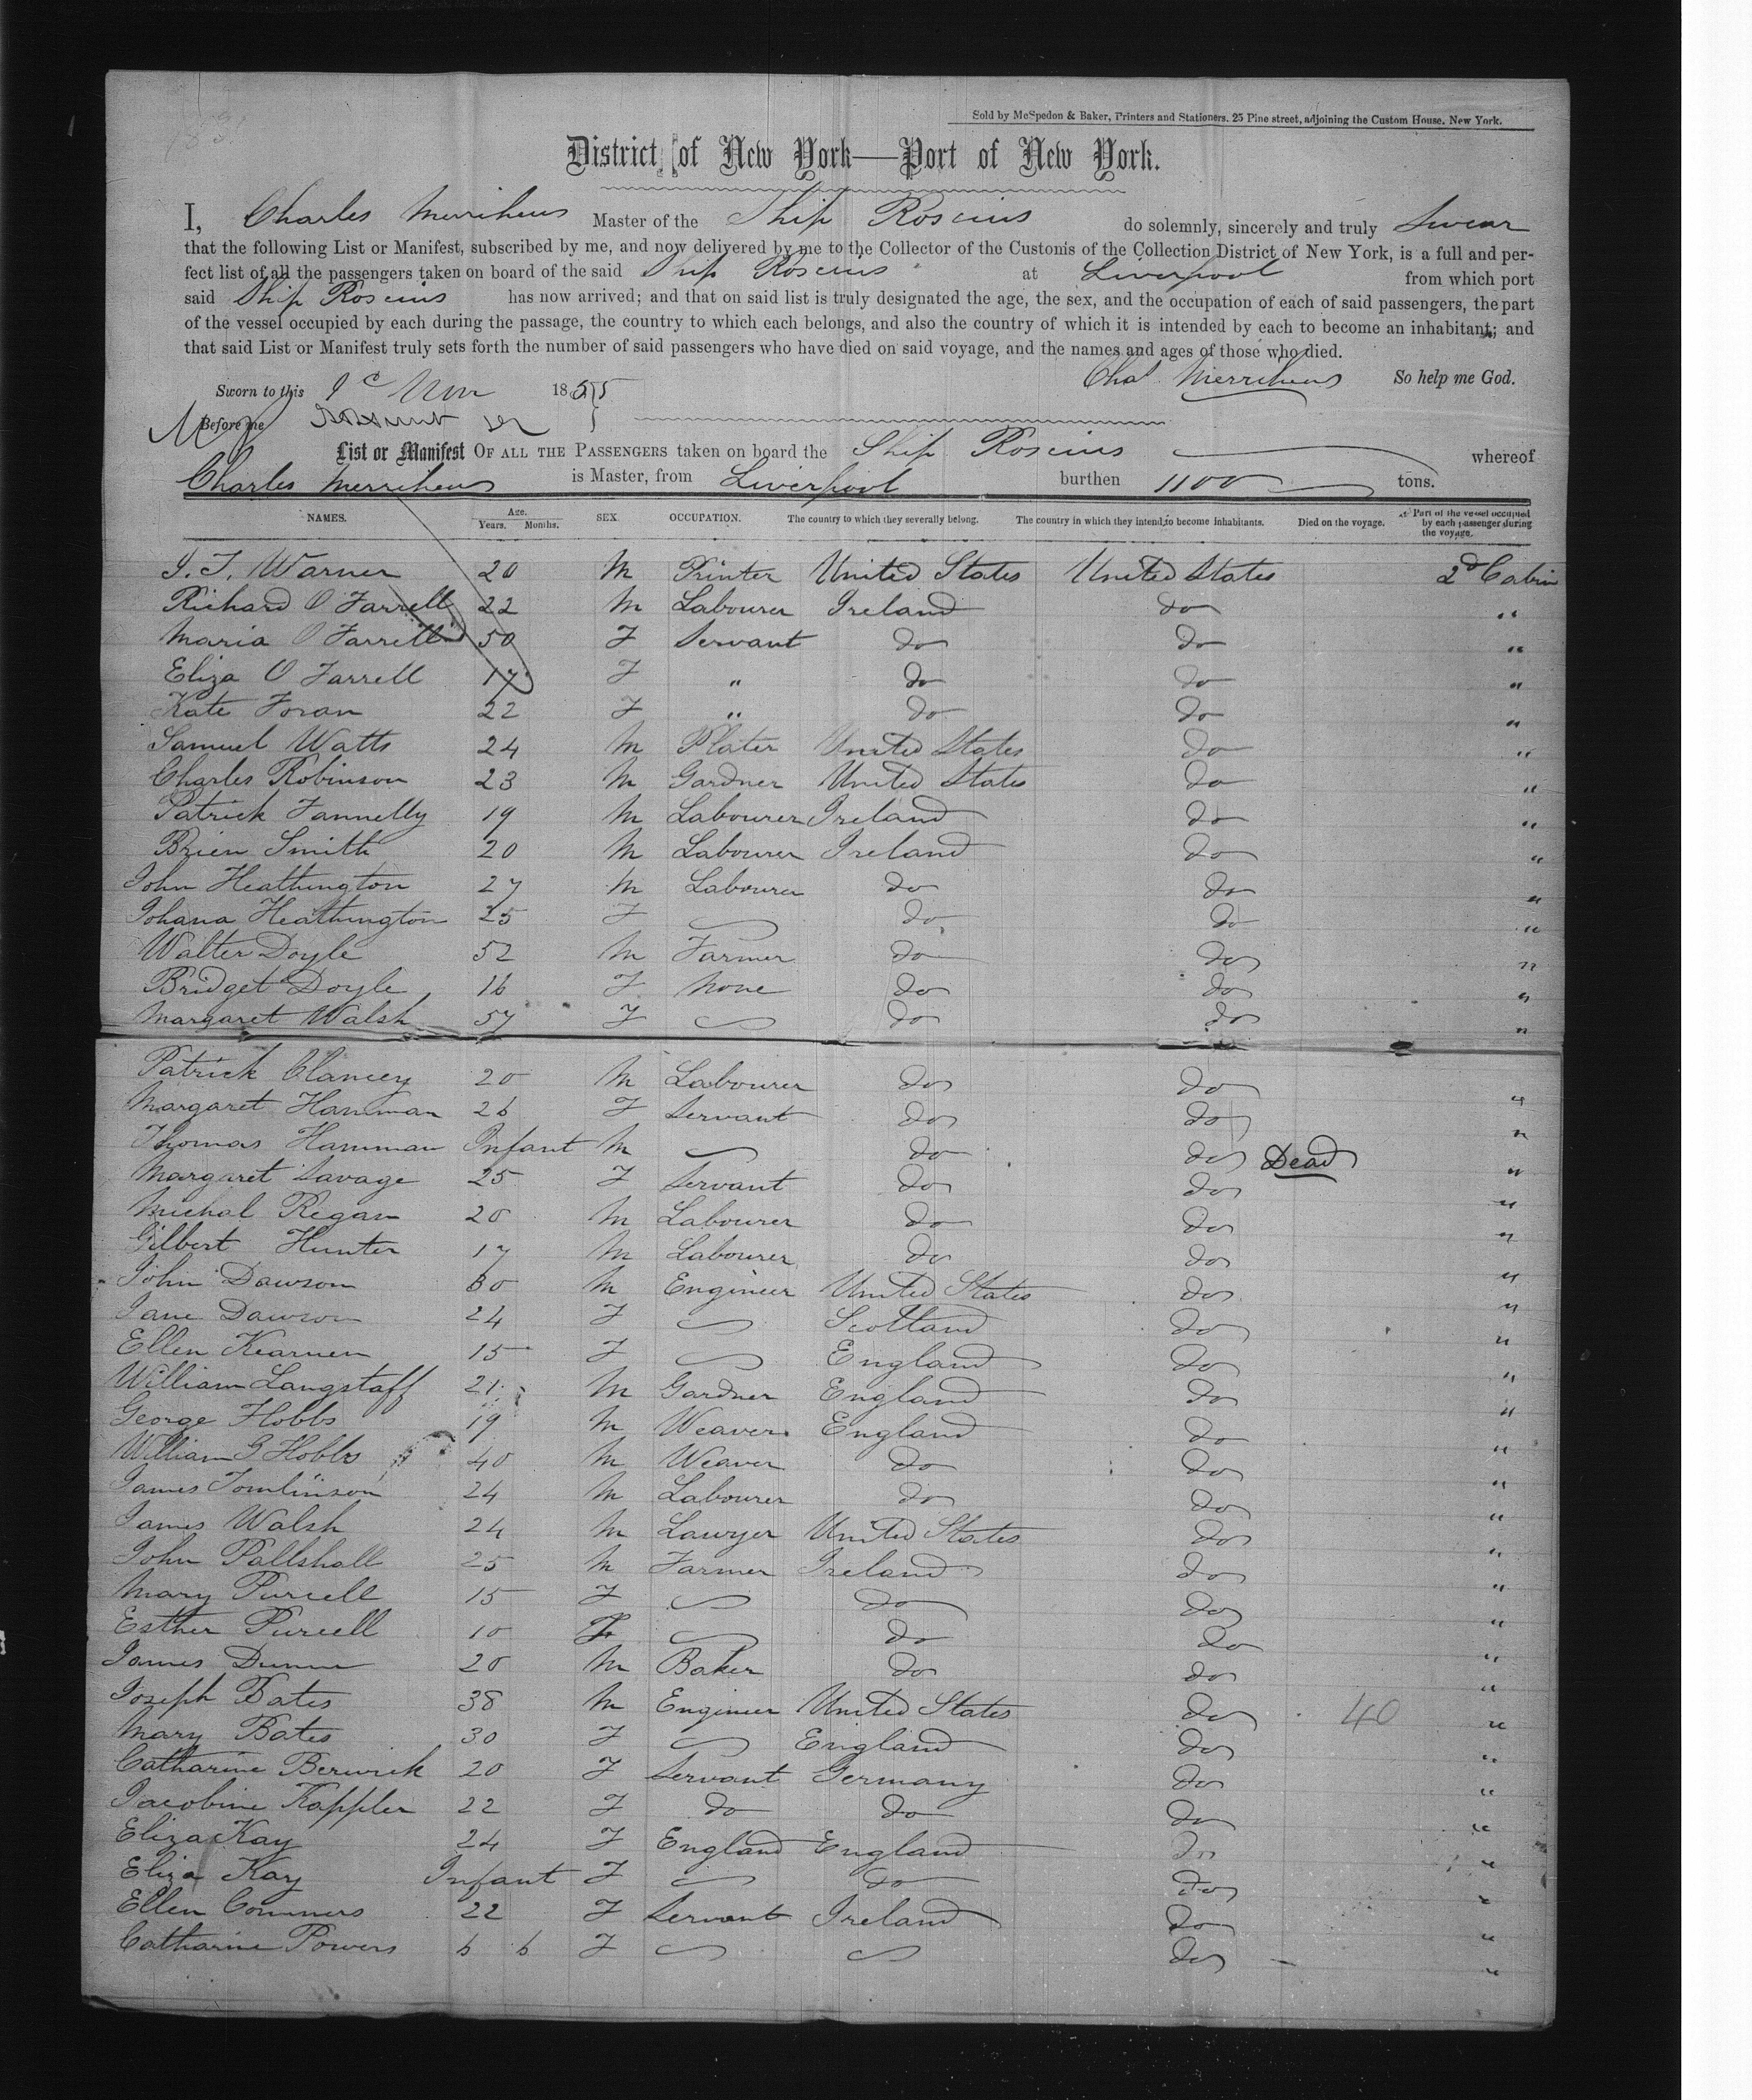 Sold by McSpedon & Baker, Printers and Stationers, 25 Pine street, adjoining the Custom House, New York.
District of New York—Port of New York.
I, Charles Merrihews Master of the Ship Roscius do solemnly, sincerely and truly Swear
that the following List or Manifest, subscribed by me, and now delivered by me to the Collector of the Customs of the Collection District of New York, is a full and per-
fect list of all the passengers taken on board of the said Ship Roscius at Liverpool from which port
said Ship Roscius has now arrived; and that on said list is truly designated the age, the sex, and the occupation of each of said passengers, the part
of the vessel occupied by each during the passage, the country to which each belongs, and also the country of which it is intended by each to become an inhabitant; and
that said List or Manifest truly sets forth the number of said passengers who have died on said voyage, and the names and ages of those who died.
Sworn to this 1855 Chas Merrihews So help me God.
Before me
List or Manifest OF ALL THE PASSENGERS taken on board the Ship Roscius whereof
Charles Merrihews is Master, from Liverpool burthen 1100 tons.
NAMES. Age. Years. Months. SEX. OCCUPATION. The country to which they severally belong. The country in which they intend to become inhabitants. Died on the voyage. Part of the vessel occupied by each passenger during the voyage.
J. J. Warner 20 M Printer United States United States 2d Cabin
Richard O Farrell 22 M Labourer Ireland do "
Maria O Farrell 50 F Servant do do "
Eliza O Farrell 17 F " do do "
Kate Foran 22 F " do do "
Samuel Watts 24 M Plater United States do "
Charles Robinson 23 M Gardner United States do "
Patrick Fannelly 19 M Labourer Ireland do "
Brien Smith 20 M Labourer Ireland do "
John Heathington 27 M Labourer do do "
Johana Heathington 25 F do do "
Walter Doyle 52 M Farmer do do "
Bridget Doyle 16 F None do do "
Margaret Walsh 57 F do do "
Patrick Clancey 20 M Labourer do do "
Margaret Hamman 26 F Servant do do "
Thomas Hamman Infant M do do Dead "
Margaret Savage 25 F Servant do do "
Michal Regan 20 M Labourer do do "
Gilbert Hunter 17 M Labourer do do "
John Dawson 30 M Engineer United States do "
Jane Dawson 24 F Scotland do "
Ellen Kearnen 15 F England do "
William Langstaff 21 M Gardner England do "
George Hobbs 19 M Weaver England do "
William G Hobbs 40 M Weaver do do "
James Tomlinson 24 M Labourer do do "
James Walsh 24 M Lawyer United States do "
John Pallshall 25 M Farmer Ireland do "
Mary Purcell 15 F do do "
Esther Purcell 10 F do do "
James Dunn 20 M Baker do do "
Joseph Bates 38 M Engineer United States do 40 "
Mary Bates 30 F England do "
Catharine Berwick 20 F Servant Germany do "
Jacobine Kappler 22 F do do do "
Eliza Kay 24 F England England do "
Eliza Kay Infant F do do "
Ellen Commers 22 F Servant Ireland do "
Catharine Powers 6 6 F do "